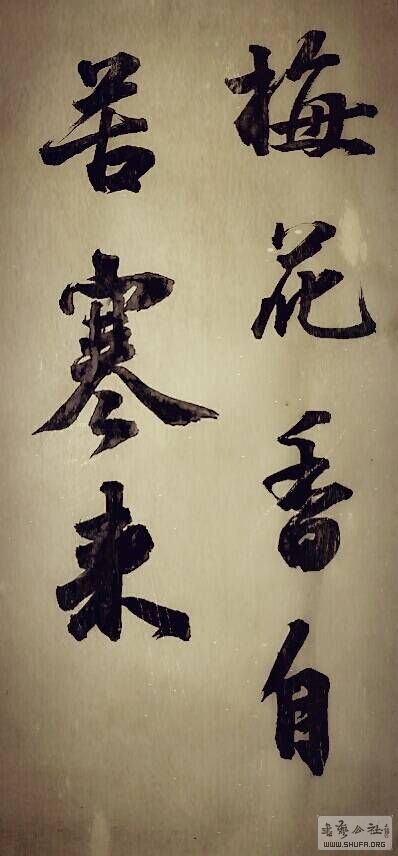 梅花香自
苦寒来
WWW.SHUFA.ORG